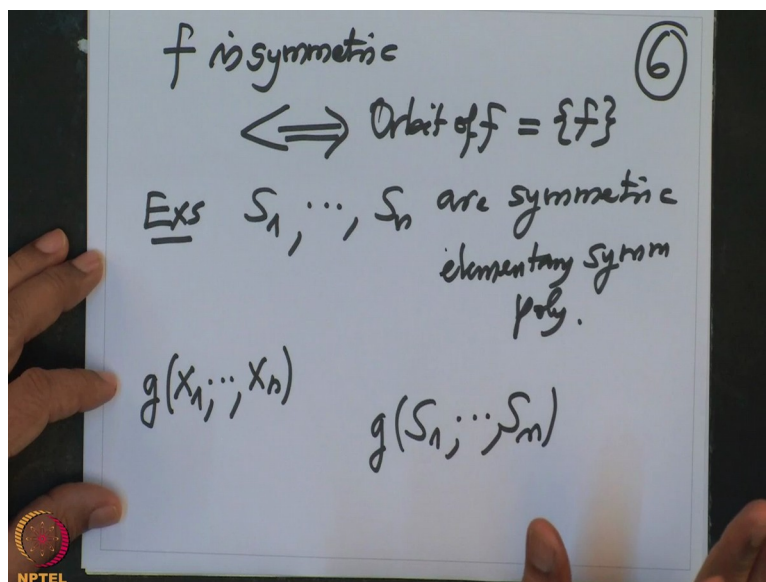 f is symmetric
6
⟺ Orbit of f = {f}
Exs S₁, ..., Sₙ are symmetric
elementary symm
poly.
g(X₁, ..., Xₙ)
g(S₁, ..., Sₙ)
NPTEL